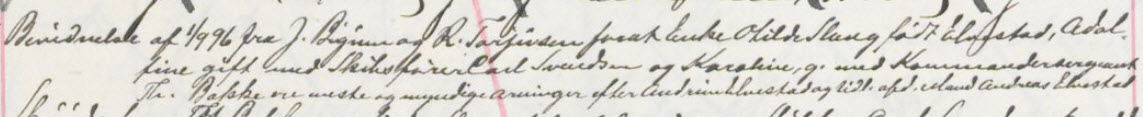 Bevidnelse af 1/9 96 fra J. Bigum og R. Torjusen for at Enke Otilde Slang født Elvestad, Adol-
fine gift med Skibsfører Carl Svendsen og Karoline, g. med Kommandersergeant
Th. Bakke ere neste og myndige arvinger efter Andrine Elvestad og tidl. afd. Mand Andreas Elvestad